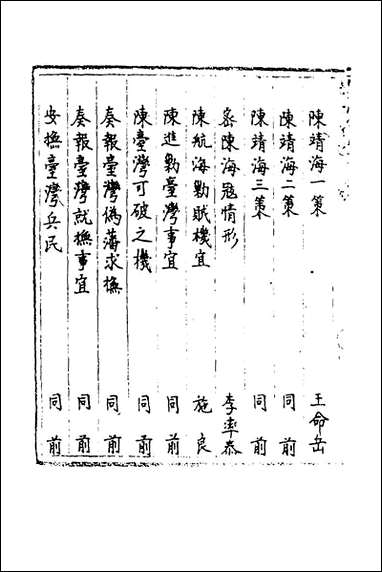 陳靖海一策 王命岳
陳靖海二策 同前
陳靖海三策 同前
密陳海寇情形 李率泰
陳航海勦賊機宜 施良
陳進勦臺灣事宜 同前
陳臺灣可破之機 同前
奏報臺灣偽藩求撫 同前
奏報臺灣就撫事宜 同前
安撫臺灣兵民 同前